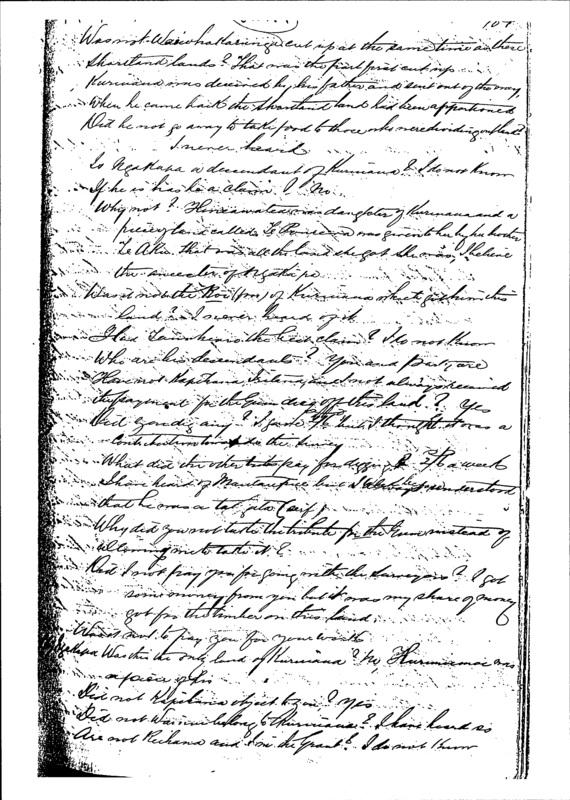 107
Was not Waiwhakaringa cut up at the same time as these
Shareland lands? That was the part first cut up.
Kuruiana was deceived by his father and sent out of the way
When he came back the land had been apportioned
Did he not go away to take food to those who were dividing
I never heard
Is Ngakapa a descendant of Kuruiana? I do not know
If he is has he a claim? No.
Why not? was daughter of Kuruiana and a
piece of land called Te was given to her by her brother
Te Ahu that was all the land she got She was, I believe
the ancestor of Ngakapa
Was it not the Koi of Kuruiana which got him this
land? I never heard of it
Had the best claim? I do not know
Who are his descendants? You and party are
Have not Kapihana, Ireland, and I not always received
the payment for the Gum digging of this land? Yes
Did you dig any? I gave but I thought it was a
contribution towards the survey
What did the others pay for digging? 2/6 a week
I have heard of but I always understood
that he was a
Why did you not take the tribute for the Gum instead of
allowing me to take it?
Did I not pay you for going with the Surveyors? I got
some money from you but it was my share of money
got for the timber on this land.
Was it not to pay you for your work
Ngakapa Was this the only land of Kuruiana? No, was
a piece of his
Did not Kapihana object to you? Yes
Did not belong to Kuruiana? I have heard so
Are not Reihana and I in the Grant? I do not know